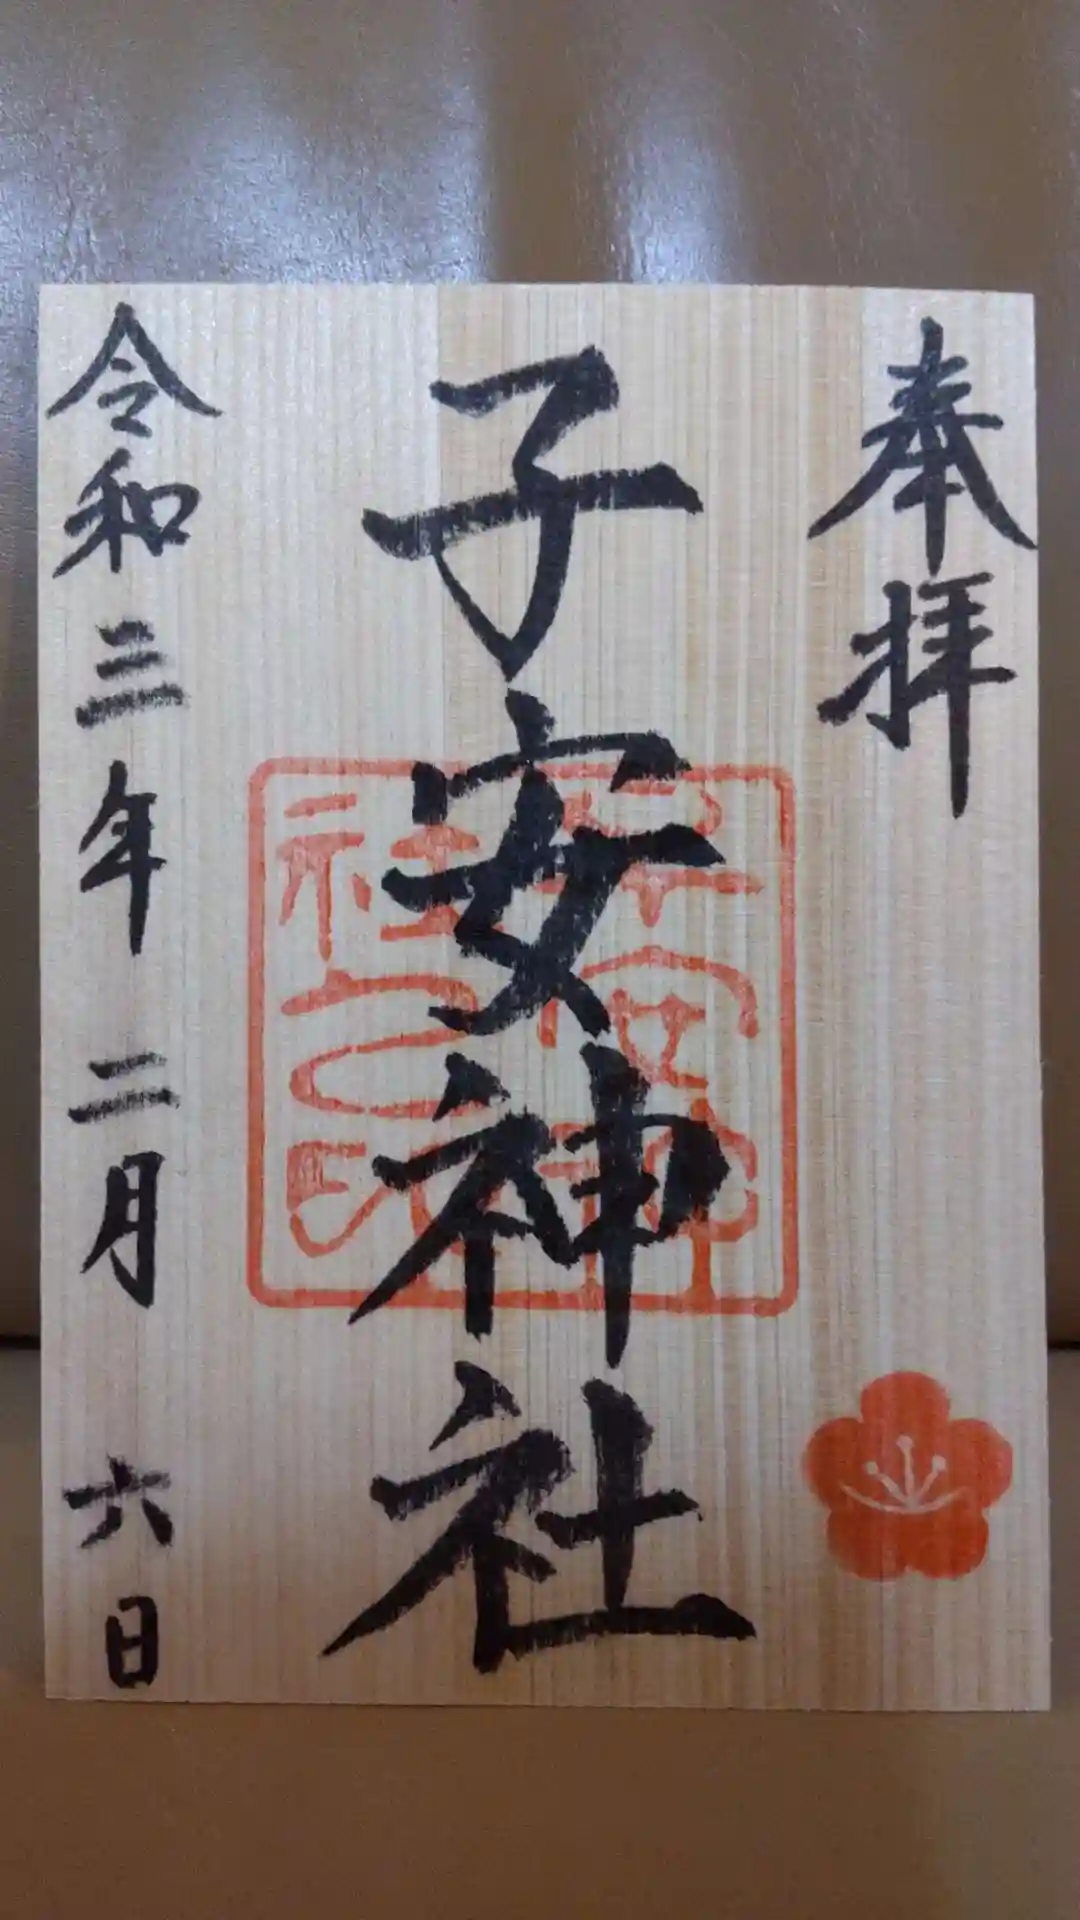 奉拝
子安神社
子安神社之印
令和三年二月六日